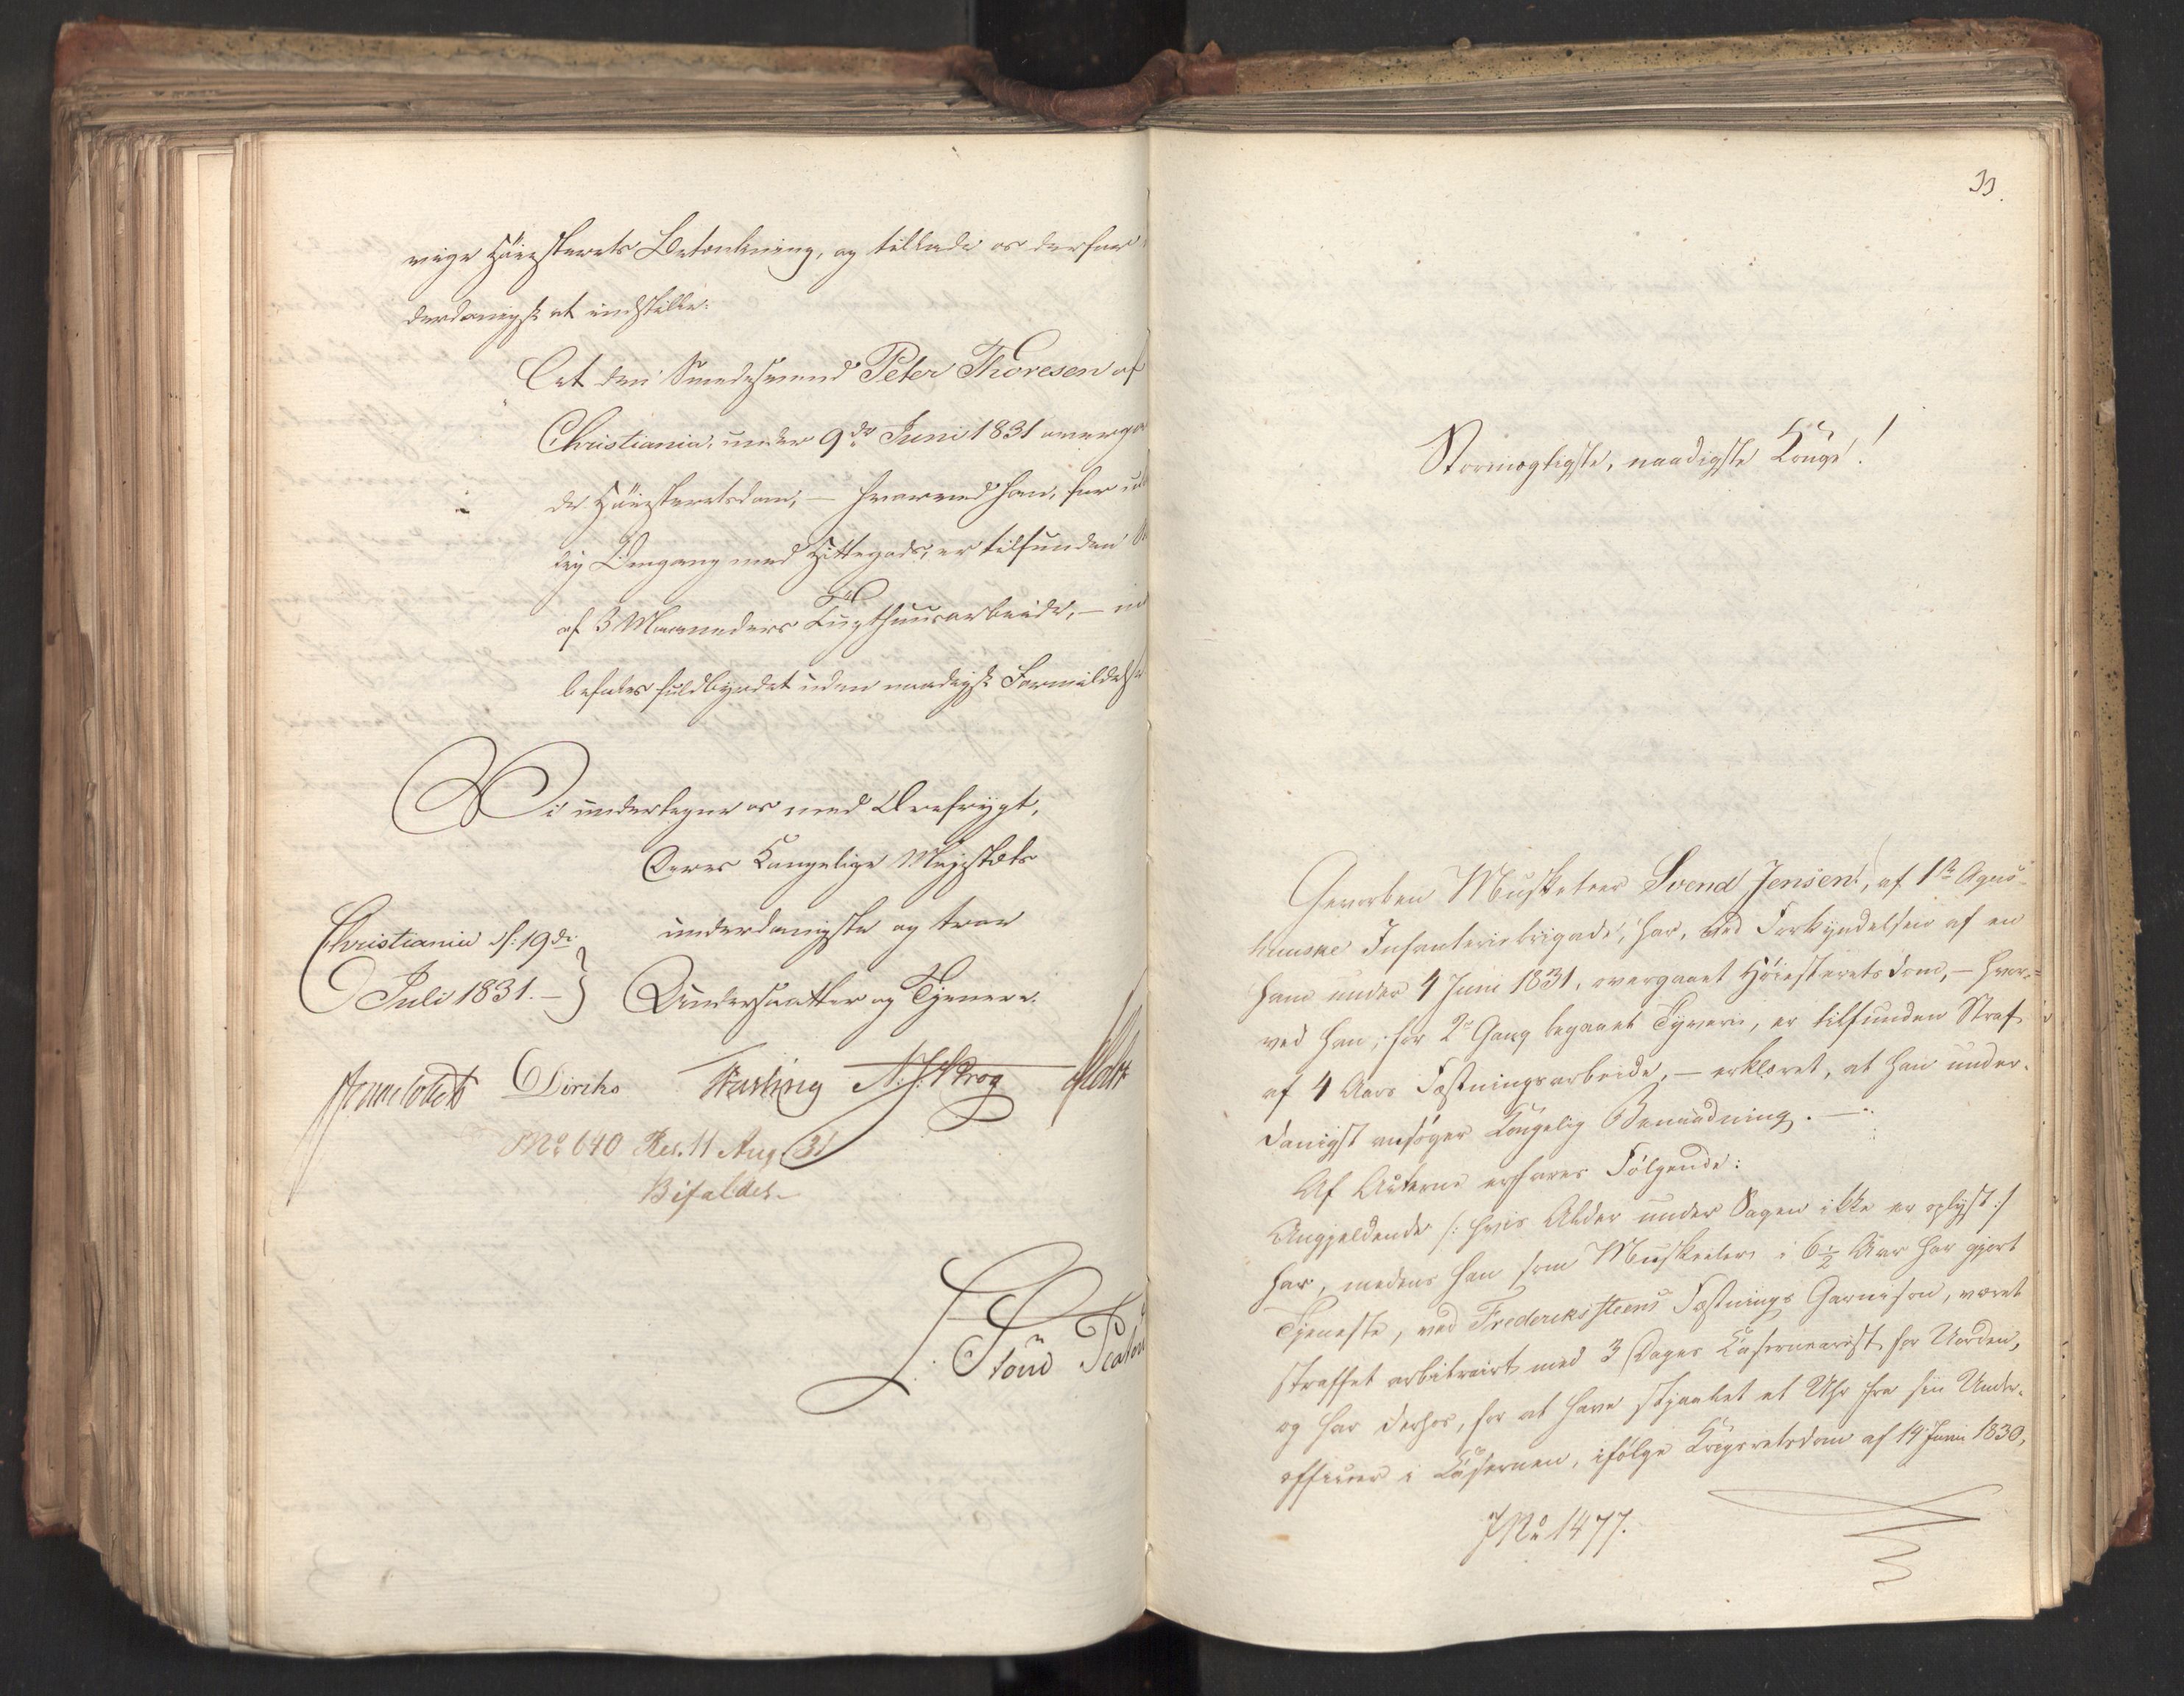 vige Höiesterets Betænkning, og tillade os derfor
derdanigst at indstille:
At den Smedesvend Peter Thoresen af
Christiania, under 9de Juni 1831 overga
de Höiesteretsdom, — hvorved han, for u
lig Omgang med Hittegods, er tilfunden
af 3 Maaneders Tugthuusarbeide, —
befales fuldbyrdet uden naadigst Formildelse
Vi undertegne os med Ærefrygt,
Deres Kongelige Majestæts
Christiania d: 19de
underdanigste og troe
Juli 1831. —
Undersaatter og Tjenere.
Diriks N. J. Krog
No 640 Res. 11 Aug 31
Bifaldet
33.
Stormægtigste, naadigste Konge!
Gevorben Musketeer Svend Jensen, af 1ste Agers-
huuske Infanteriebrigade, har, ved Forkyndelsen af en
ham under 4 Juni 1831, overgaaet Höiesteretsdom, — hvor-
ved han, for 2den Gang begaaet Tyverie, er tilfunden Straf
af 4 Aars Fæstningsarbeide, — erklæret, at han under-
danigst ansöger Kongelig Benaadning. —
Af Acterne erfares Fölgende:
Angjeldende /: hvis Alder under Sagen ikke er oplyst :/
har, medens han som Musketeer i 6½ Aar har gjort
Tjeneste, ved Frederikssteens Fæstnings Garnison, været
straffet arbitrairt med 3 Dages Casernearrest for Uorden,
og har derhos, for at have stjaalet et Uhr fra sin Under-
officier i Casernen, ifölge Krigsretsdom af 19 Juni 1830,
J No 1477.